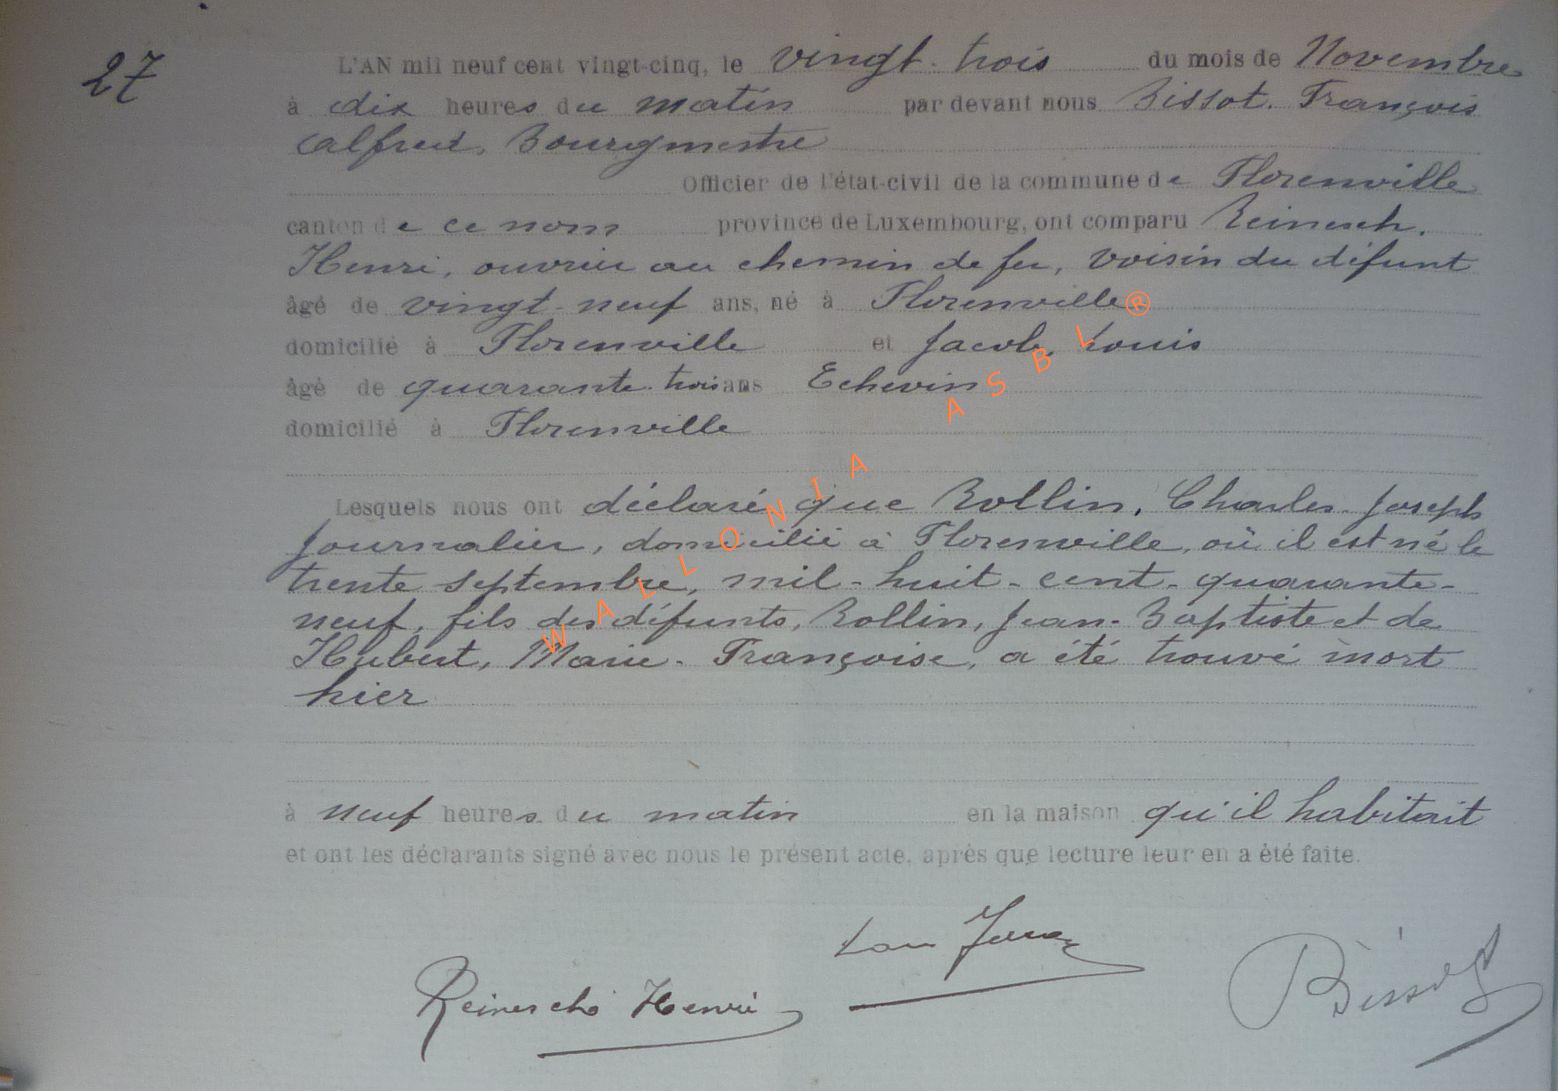 27
L'AN mil neuf cent vingt-cinq, le vingt-trois du mois de Novembre
à dix heures du matin par devant nous Bissot, François
Alfred, Bourgmestre
Officier de l'état-civil de la commune de Florenville
canton de ce nom province de Luxembourg, ont comparu Reinesch,
Henri, ouvrier au chemin de fer, voisin du défunt
âgé de vingt-neuf ans, né à Florenville
domicilié à Florenville et Jacob, Louis
âgé de quarante-trois ans Echevin
domicilié à Florenville
Lesquels nous ont déclaré que Rollin, Charles-Joseph
journalier, domicilié à Florenville, où il est né le
trente septembre, mil-huit-cent-quarante-
neuf, fils des défunts, Rollin, Jean-Baptiste et de
Hubert, Marie-Françoise, a été trouvé mort
hier
à neuf heures du matin en la maison qu'il habitait
et ont les déclarants signé avec nous le présent acte, après que lecture leur en a été faite.
Reinesch Henri
Bissot
WALLONIA ASBL®